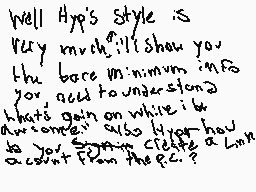 Well Hyp's style is
very much "i'll show you
the bare minimum info
you need to understand
what's goin on while i be
awesome." also Hyper how
do you create a Link
account from the p.c.?